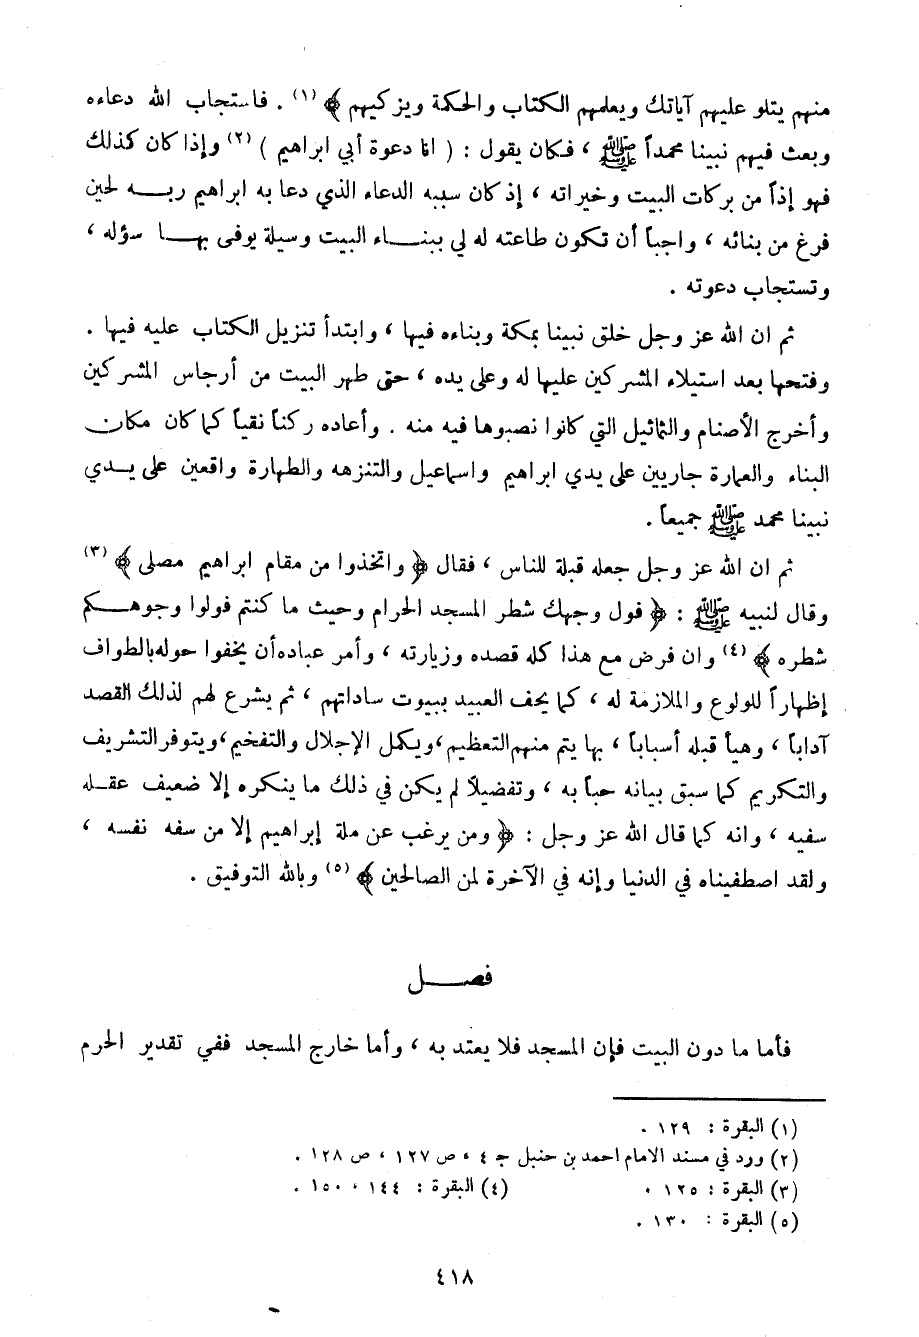 منهم يتلو عليهم آياتك ويعلمهم الكتاب والحكمة ويزكيهم ﴾ (١) . فاستجاب الله دعاءه
وبعث فيهم نبينا محمداً ﷺ ، فكان يقول : ( انا دعوة أبي ابراهيم ) (٢) وإذا كان كذلك
فهو إذاً من بركات البيت وخيراته ، إذ كان سببه الدعاء الذي دعا به ابراهيم ربه لحين
فرغ من بنائه ، واجباً أن تكون طاعته له لي ببناء البيت وسيلة يوفى بها سؤله ،
وتستجاب دعوته .
ثم ان الله عز وجل خلق نبينا بمكة وبناءه فيها ، وابتدأ تنزيل الكتاب عليه فيها .
وفتحها بعد استيلاء المشركين عليها له وعلى يده ، حتى طهر البيت من أرجاس المشركين
وأخرج الأصنام والتماثيل التي كانوا نصبوها فيه منه . وأعاده ركناً نقياً كما كان مكان
البناء والعمارة جاريين على يدي ابراهيم واسماعيل والتنزهه والطهارة واقعين على يدي
نبينا محمد ﷺ جميعاً .
ثم ان الله عز وجل جعله قبلة للناس ، فقال ﴿ واتخذوا من مقام ابراهيم مصلى ﴾ (٣)
وقال لنبيه ﷺ : ﴿ فول وجهك شطر المسجد الحرام وحيث ما كنتم فولوا وجوهكم
شطره ﴾ (٤) وان فرض مع هذا كله قصده وزيارته ، وأمر عباده أن يخفوا حوله بالطواف
إظهاراً للولوع والملازمة له ، كما يحف العبيد ببيوت ساداتهم ، ثم يشرع لهم لذلك القصد
آداباً ، وهيأ قبله أسباباً ، بها يتم منهم التعظيم ، ويكمل الإجلال والتفخيم ، ويتوفر التشريف
والتكريم كما سبق بيانه حباً به ، وتفضيلاً لم يكن في ذلك ما ينكره إلا ضعيف عقله
سفيه ، وانه كما قال الله عز وجل : ﴿ ومن يرغب عن ملة إبراهيم إلا من سفه نفسه ،
ولقد اصطفيناه في الدنيا وإنه في الآخرة لمن الصالحين ﴾ (٥) وبالله التوفيق .
فصل
فأما ما دون البيت فإن المسجد فلا يعتد به ، وأما خارج المسجد ففي تقدير الحرم
(١) البقرة : ١٢٩ .
(٢) ورد في مسند الامام احمد بن حنبل ج ٤ ، ص ١٢٧ ، ص ١٢٨ .
(٣) البقرة : ١٢٥ . (٤) البقرة : ١٤٤ ، ١٥٠ .
(٥) البقرة : ١٣٠ .
٤١٨